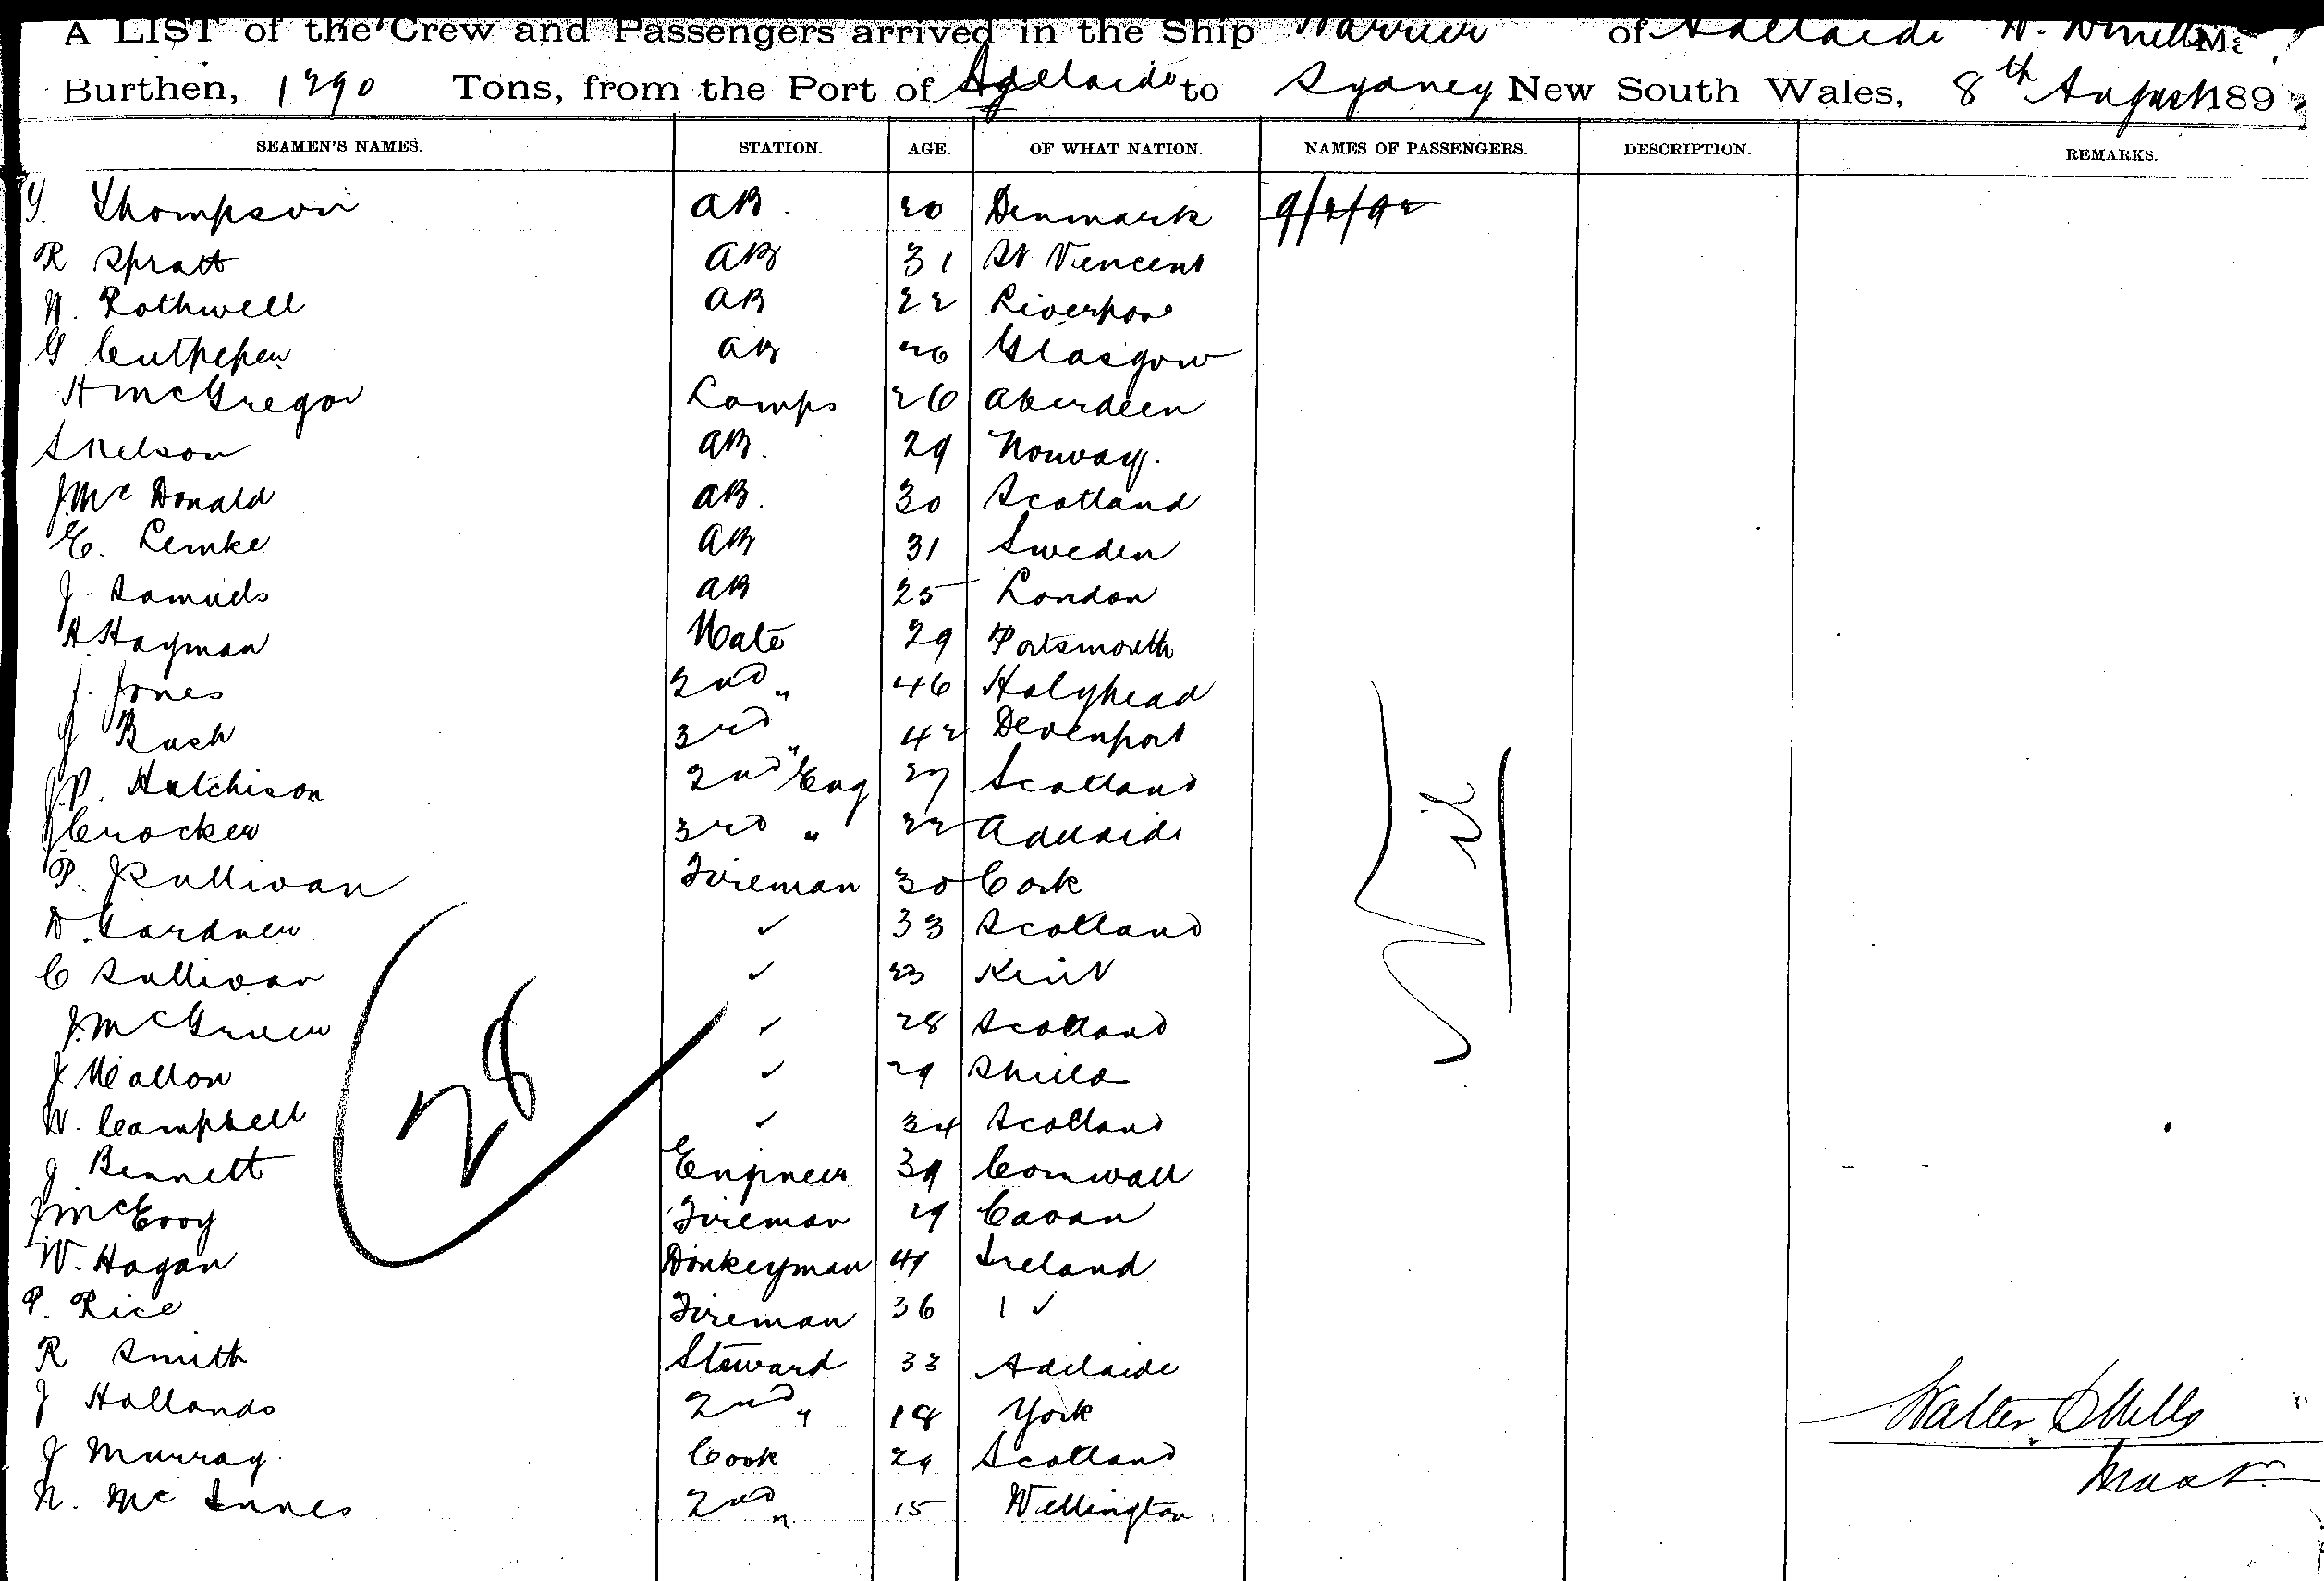 A LIST of the Crew and Passengers arrived in the Ship Warrior of Adelaide W.
Burthen, 1290 Tons, from the Port of Adelaide to Sydney New South Wales, 8th August 189
SEAMEN'S NAMES. STATION. AGE. OF WHAT NATION. NAMES OF PASSENGERS. DESCRIPTION. REMARKS.
Y. Thompson AB. 20 Denmark 9/8/92
R Spratt AB 31 St Vencent
H. Rothwell AB 22 Liverpool
G Cutpeper AB 26 Glasgow
H McGregor Lamps 26 Aberdeen
S Nelson AB. 29 Norway.
J. Mc Donald AB. 30 Scotland
E. Lemke AB 31 Sweden
J. Samuels AB 25 London
H. Hayman Mate 29 Portsmouth
J. Jones 2nd " 46 Holyhead
J Bush 3rd " 42 Devenport
J.P. Hutchison 2nd Eng 27 Scotland
J Crocker 3rd " 22 Adelaide
Nil
P. Sullivan Fireman 30 Cork
D. Gardner ✓ 33 Scotland
C Sullivan ✓ 23 Kent
28
J. McGruer ✓ 28 Scotland
J Mallon ✓ 29 Shield
W. Campbell ✓ 34 Scotland
J Bennett Engineer 39 Cornwall
J McEvoy Fireman 29 Cavan
W. Hagan Donkeyman 41 Ireland
P. Rice Fireman 36 1 ✓
R Smith Steward 33 Adelaide
J Hollands 2nd " 18 York
Walter D Mills
J Murray Cook 29 Scotland
Master
N. Mc Innes 2nd " 15 Wellington